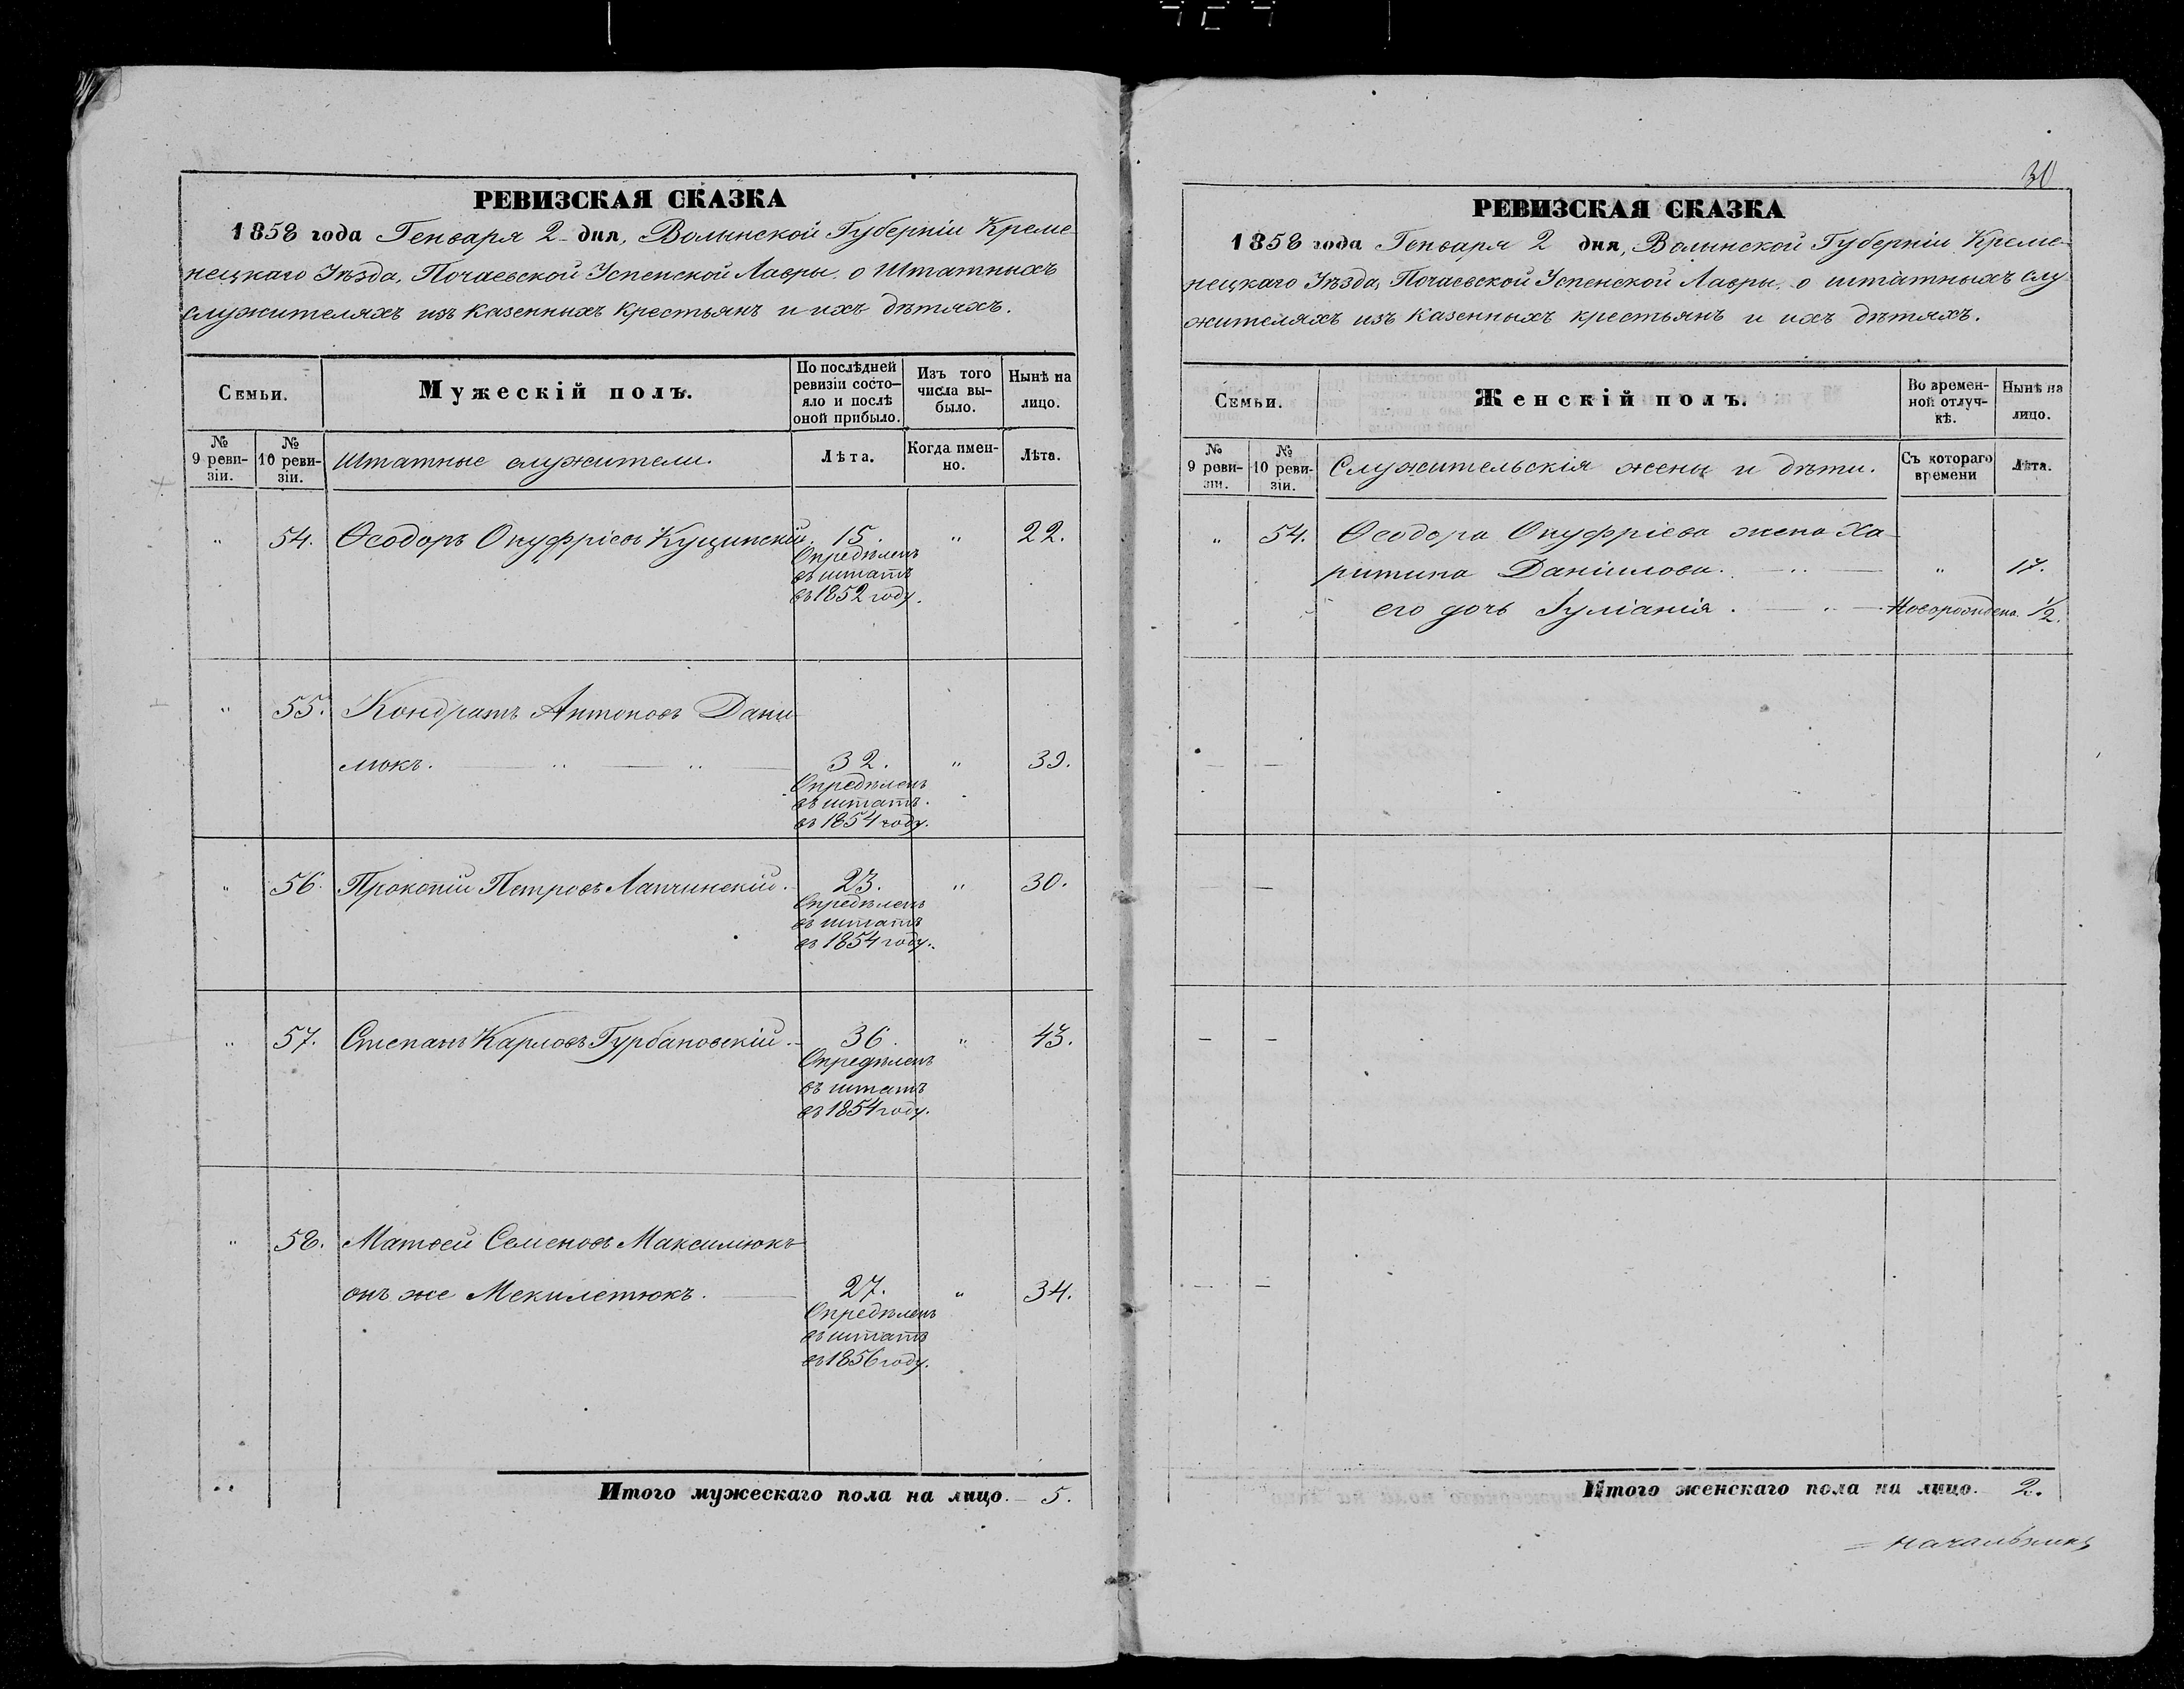 РЕВИЗСКАЯ СКАЗКА
1858 года Генваря 2 дня, Волынской Губерніи Креме-
нецкаго Уѣзда, Почаевской Успенской Лавры, о Штатныхъ
служителяхъ изъ казенныхъ крестьянъ и ихъ дѣтяхъ.
Семьи.
Мужескій полъ.
По послѣдней
ревизіи состо-
яло и послѣ
оной прибыло.
Изъ того
числа вы-
было.
Нынѣ на
лицо.
№
9 реви-
зіи.
№
10 реви-
зіи.
Штатные служители.
Лѣта.
Когда имен-
но.
Лѣта.
" 54. Ѳеодоръ Онуфріевъ Кущинскій. 15. " 22.
Опредѣленъ
въ штатъ
въ 1852 году.
" 55. Кондратъ Антоновъ Дани-
люкъ. 32. " 39.
Опредѣленъ
въ штатъ
въ 1854 году.
" 56. Прокопій Петровъ Лапчинскій. 23. " 30.
Опредѣленъ
въ штатъ
въ 1854 году.
" 57. Степанъ Карловъ Гурбановскій. 36. " 43.
Опредѣленъ
въ штатъ
въ 1854 году.
" 58. Матвей Семеновъ Максимюкъ
онъ же Мекилетюкъ. 27. " 34.
Опредѣленъ
въ штатъ
въ 1856 году.
Итого мужескаго пола на лицо. 5.
30
РЕВИЗСКАЯ СКАЗКА
1858 года Генваря 2 дня, Волынской Губерніи Креме-
нецкаго Уѣзда, Почаевской Успенской Лавры, о штатныхъ слу-
жителяхъ изъ казенныхъ крестьянъ и ихъ дѣтяхъ.
Семьи.
Женскій полъ.
Во времен-
ной отлуч-
кѣ.
Нынѣ на
лицо.
№
9 реви-
зіи.
№
10 реви-
зіи.
Служительскія жены и дѣти.
Съ котораго
времени
Лѣта.
" 54. Ѳеодора Онуфріева жена Ха-
ритина Даніилова. " 17.
его дочь Іуліанія. Новорождена. 1/2.
Итого женскаго пола на лицо. 2.
начальникъ